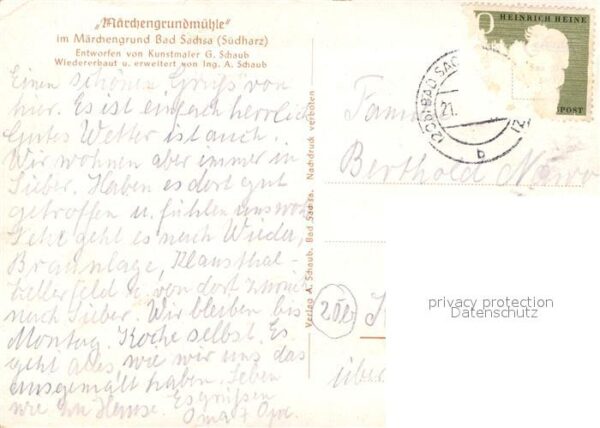 „Märchengrundmühle"
im Märchengrund Bad Sachsa (Südharz)
Entworfen von Kunstmaler G. Schaub
Wiedererbaut u. erweitert von Ing. A. Schaub
Einen schönen Gruß von
hier. Es ist einfach herrlich
Gutes Wetter ist auch.
Wir wohnen aber immer in
Sieber. Haben es dort gut
getroffen u. fühlen uns wohl
Jetzt geht es nach Wieda,
Braunlage, Klausthal-
Zellerfeld u. von dort zurück
nach Sieber. Wir bleiben bis
Montag. Koche selbst. Es
geht alles, wie wir uns das
ausgemalt haben. Leben
wie zu Hause. Es grüßen
Oma + Opa.
Verlag A. Schaub, Bad Sachsa. Nachdruck verboten
HEINRICH HEINE
POST
(20b) BAD SAC
21.
b
Fam
Berthold
20b
über
privacy protection
Datenschutz